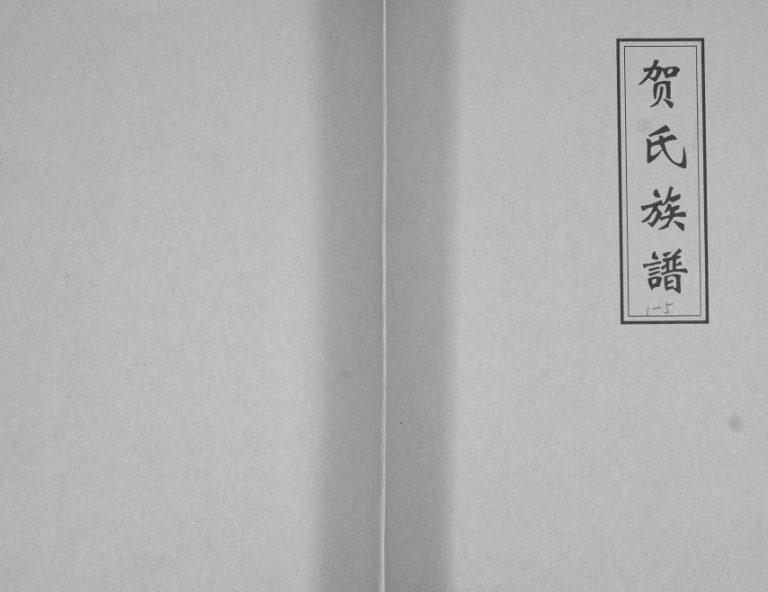 贺氏族譜
1-5